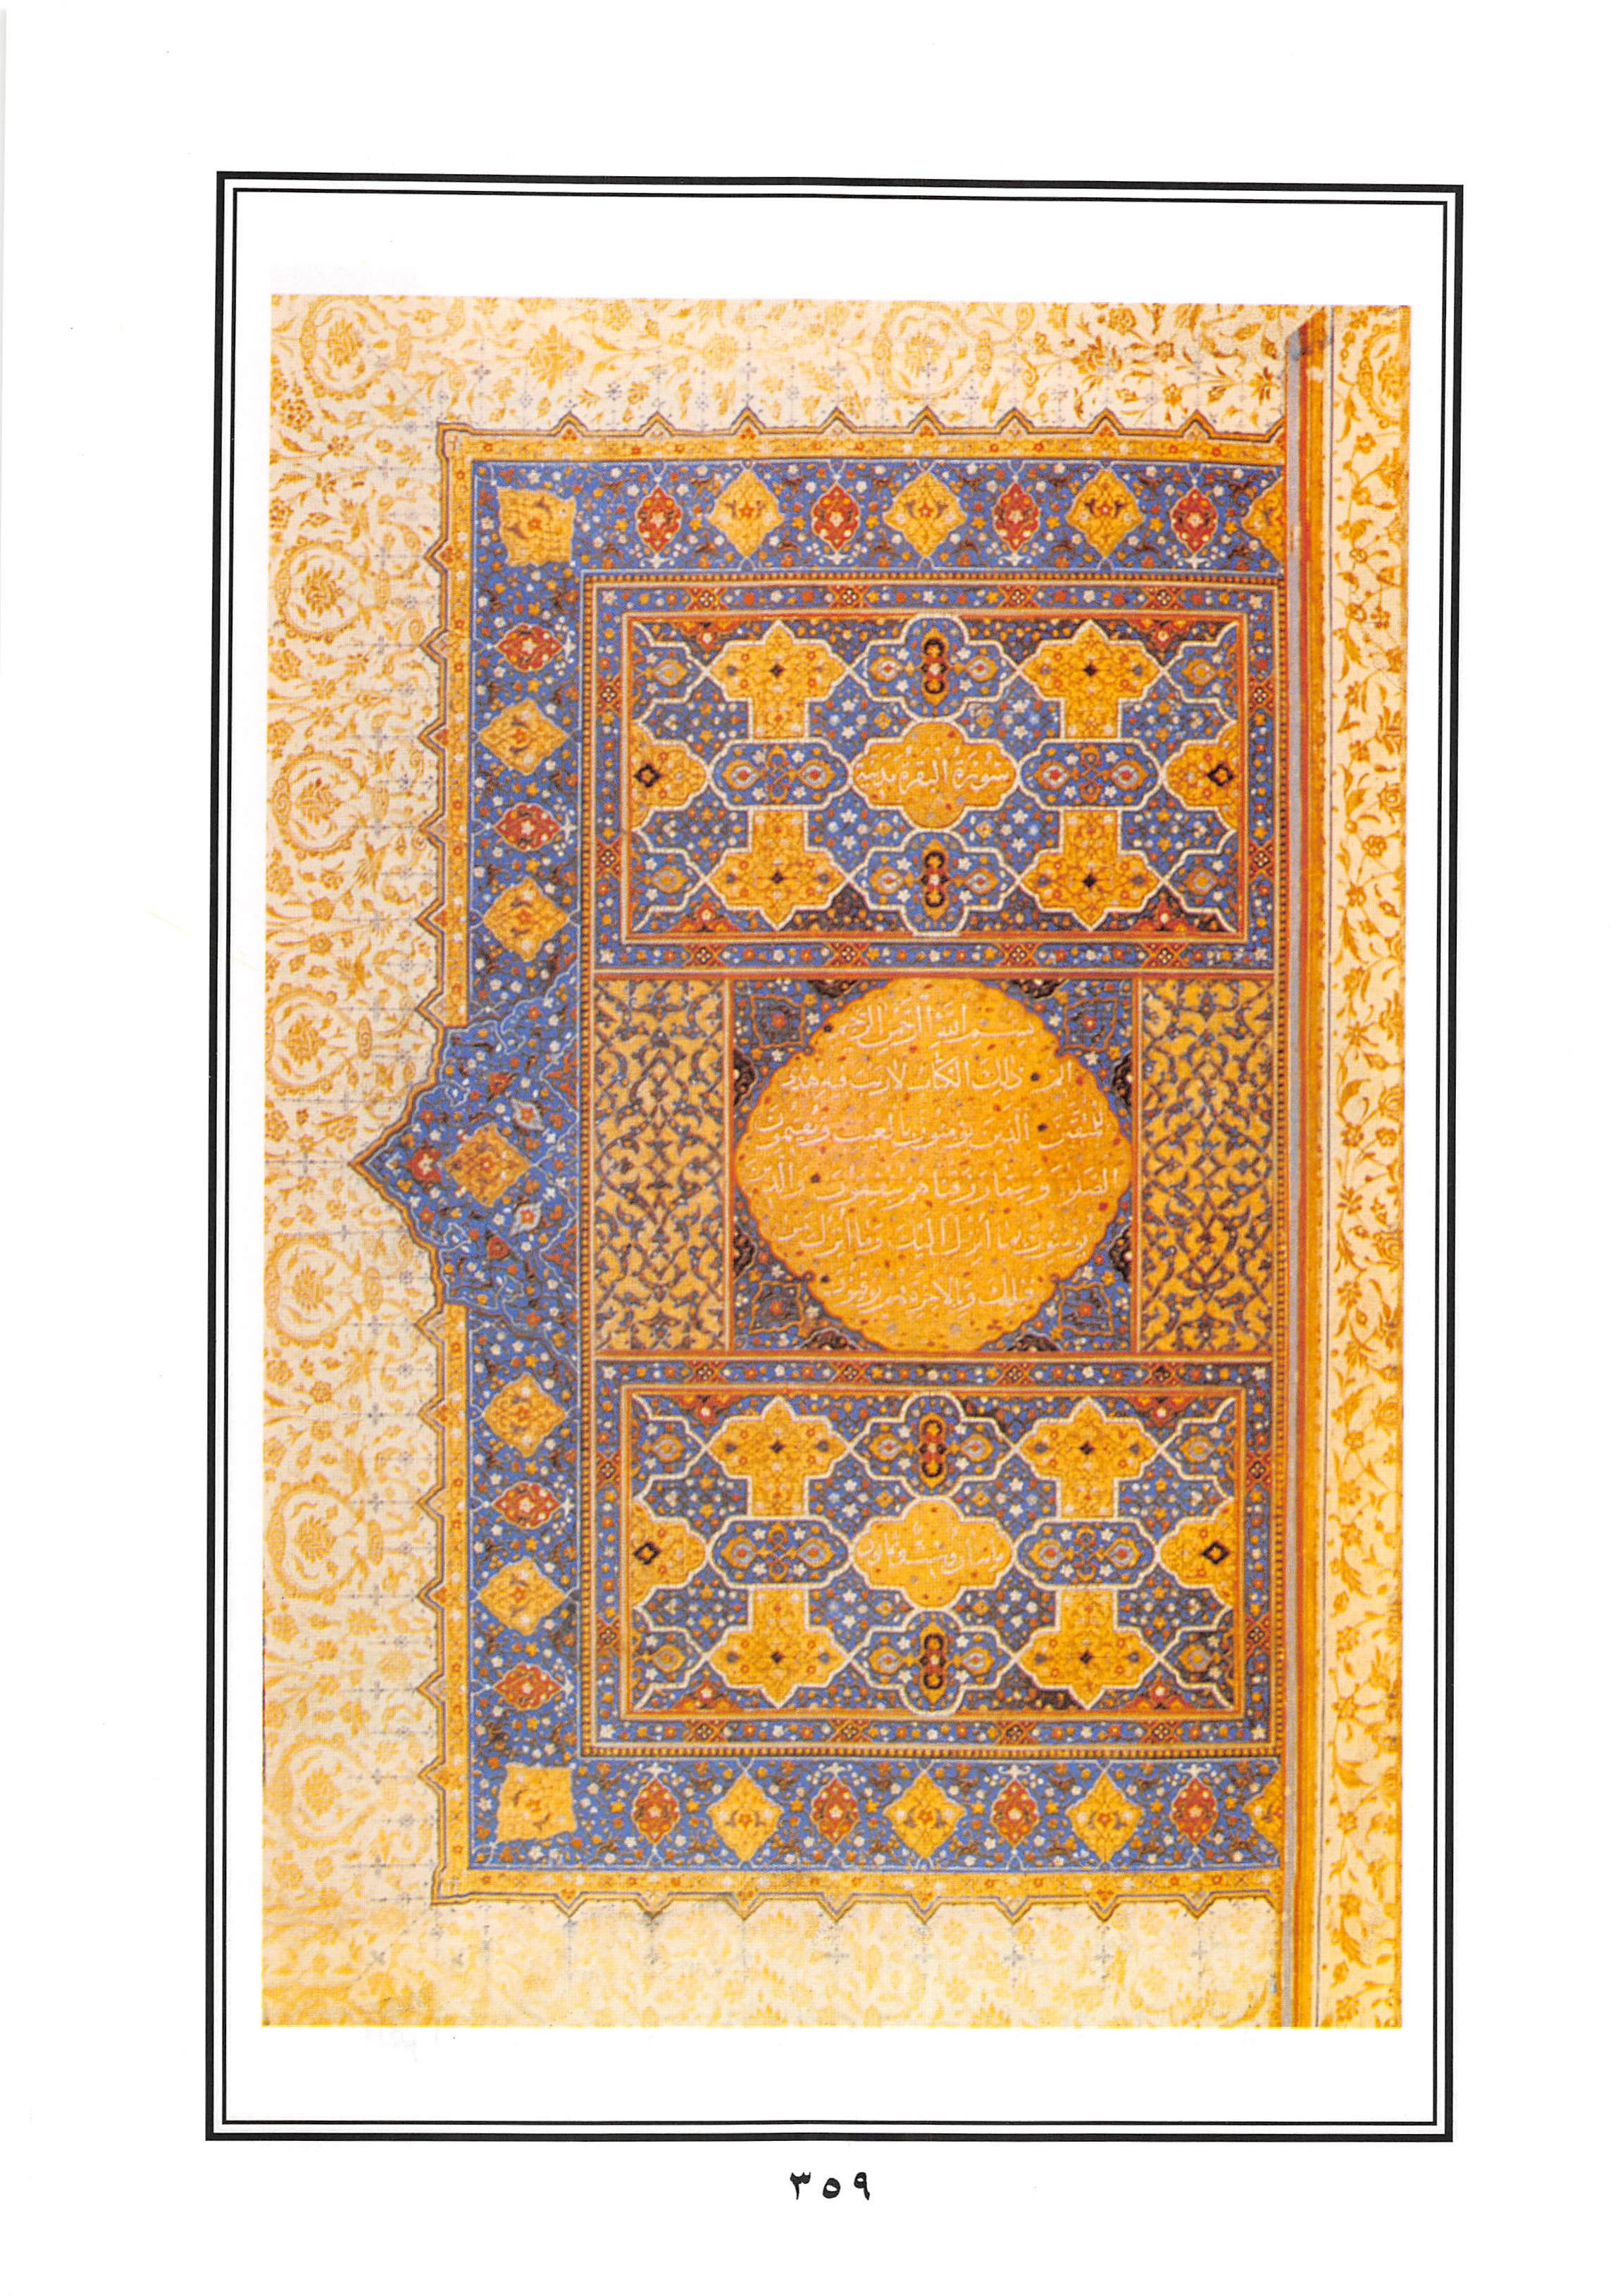 سورة البقرة مدنية
بسم الله الرحمن الرحيم
الم ذلك الكتاب لا ريب فيه هدى
للمتقين الذين يؤمنون بالغيب ويقيمون
الصلوة ومما رزقناهم ينفقون والذين
يؤمنون بما أنزل اليك وما أنزل من
قبلك وبالاخرة هم يوقنون
٣٥٩